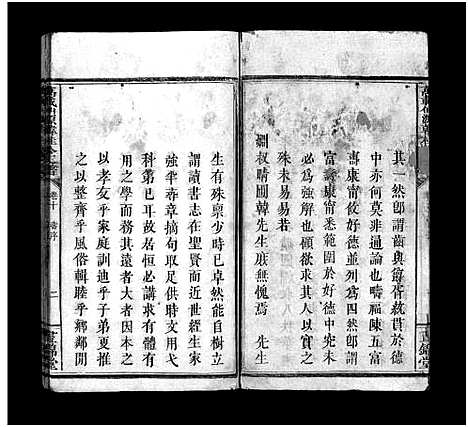 其一然卽謂齒與爵皆統貫於德
中亦何莫非通論也疇福陳五富
壽康甯攸好德並列四然卽謂
富康甯悉範圍於好德中究未
必爲強解也顧欲求其人以實之
殊未易易若
叔晴圃韓先生庶無愧焉 先生
生有殊禀少時已卓然能自樹立
謂讀書志在聖賢而近世經生家
強半尋章摘句取足供時文用弋
科第已耳故居恒必講求有體有
用務其遠者大者因本之
以孝友乎家庭訓迪乎子弟更推
之以整齊乎風俗輯睦乎鄉鄰閒
卷十
二
晝錦堂